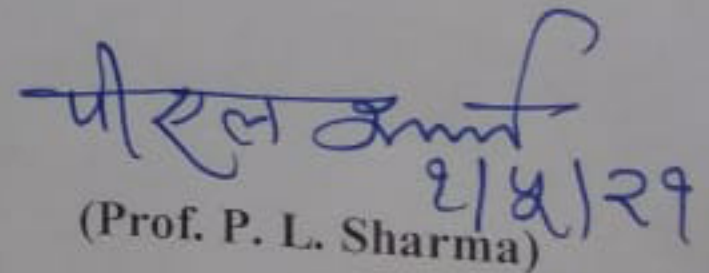 पी एल शर्मा
१/५/२१
(Prof. P. L. Sharma)